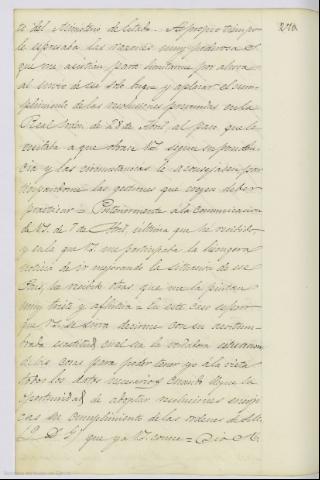 270
te del Ministerio de Estado. A propio tiempo
le espresaba las razones muy poderosas
que me asistian para limitarme por ahora
al envio de un solo buque y aplazar el cum-
plimiento de las resoluciones prevenidas en la
Real orden de 28 de Abril, al paso que le
invitaba a que obrase V. segun su pruden-
cia y las circunstancias le aconsejasen par-
ticipandome las gestiones que creyera deber
practicar = Posteriormente á la comunicacion
de V. de 7 de Abril, última que he recibido
y en la que V. me participaba la lisongera
noticia de ir mejorando la situacion de ese
Pais, he recibido otras que me la pintan
muy triste y aflictiva = En este caso espero
que V. se sirva decirme con su acostum-
brada exactitud cual es la verdadera situacion
de las cosas para poder tener yo á la vista
todos los datos necesarios cuando llegue la
oportunidad de adoptar resoluciones energi-
cas en cumplimiento de las ordenes de S. M.
Q. D. G. que ya V. conoce = Dios